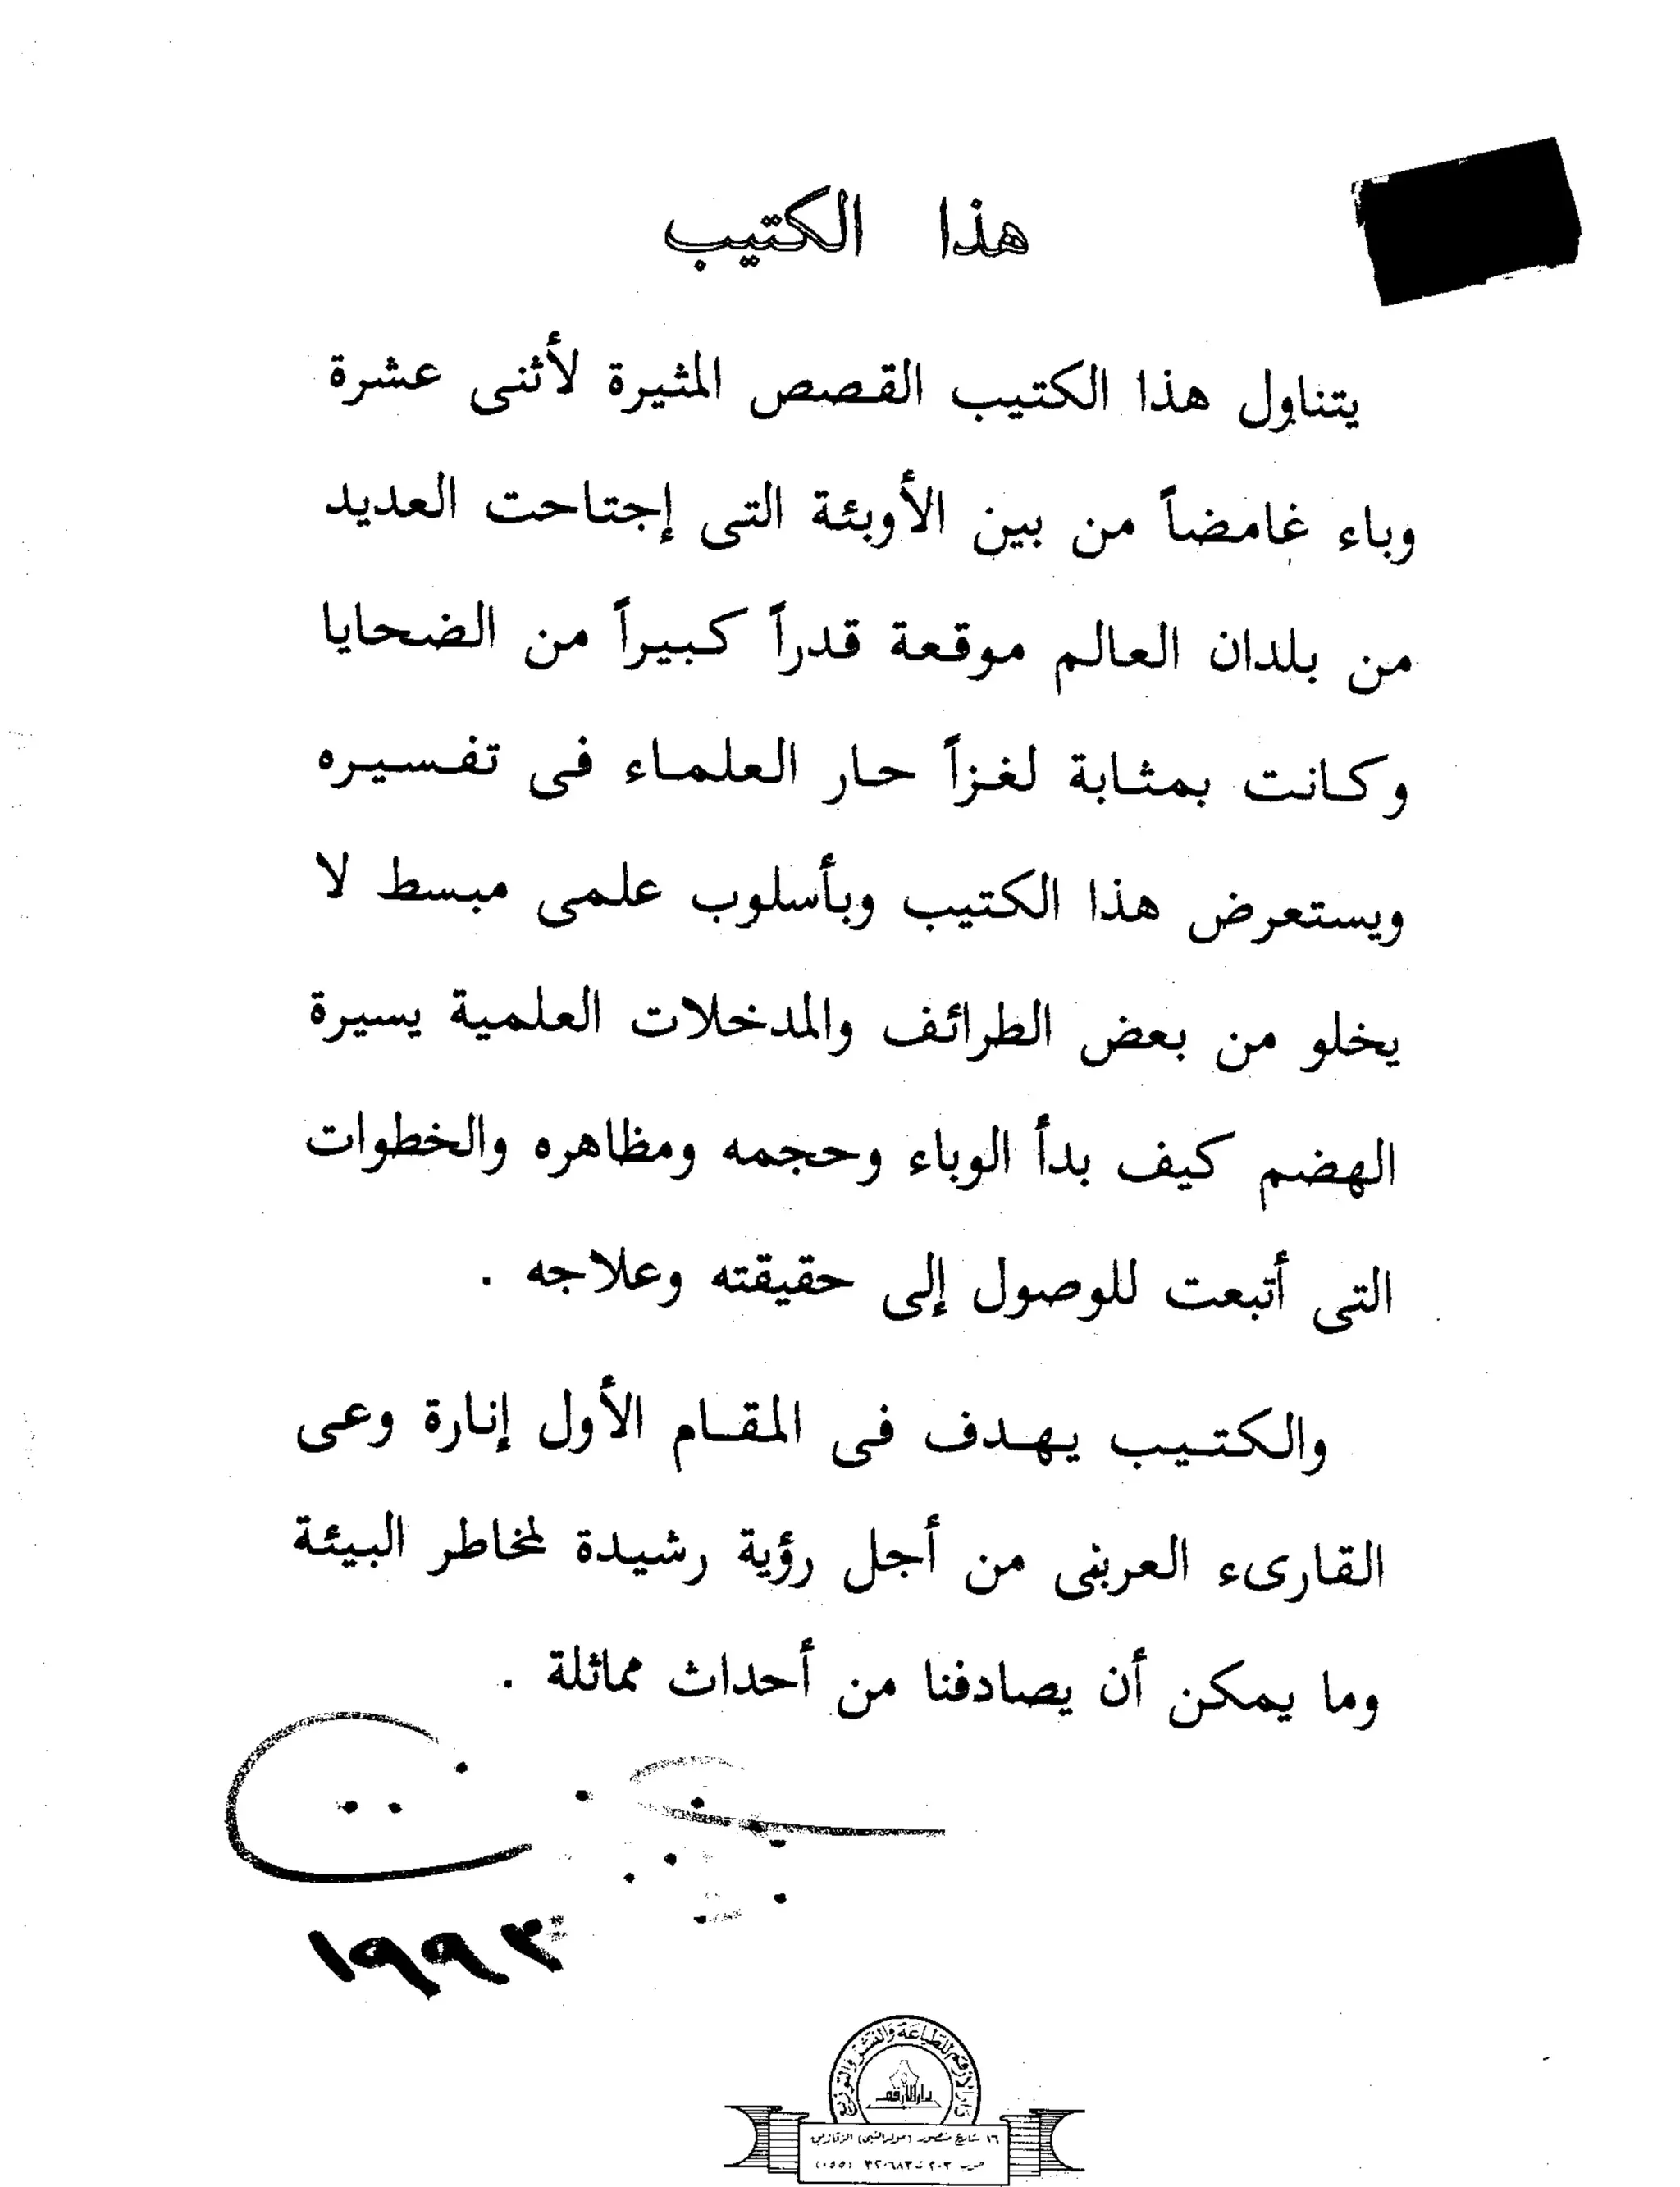 هذا الكتيب
يتناول هذا الكتيب القصص المثيرة لأثنى عشرة
وباء غامضاً من بين الأوبئة التى إجتاحت العديد
من بلدان العالم موقعة قدراً كبيراً من الضحايا
وكانت بمثابة لغزاً حار العلماء فى تفسيره
ويستعرض هذا الكتيب وبأسلوب علمى مبسط لا
يخلو من بعض الطرائف والمدخلات العلمية يسيرة
الهضم كيف بدأ الوباء وحجمه ومظاهره والخطوات
التى أتبعت للوصول إلى حقيقته وعلاجه .
والكتيب يهدف فى المقام الأول إنارة وعى
القارىء العربى من أجل رؤية رشيدة لمخاطر البيئة
وما يمكن أن يصادفنا من أحداث مماثلة .
١٩٩٣
دار الأرقم للطباعة والنشر والتوزيع
دار الأرقم
١٦ شارع منصور (مولد النبى) الزقازيق
ص.ب ٢٠٣ ت ٣٢٠٦٨٣ (٠٥٥)